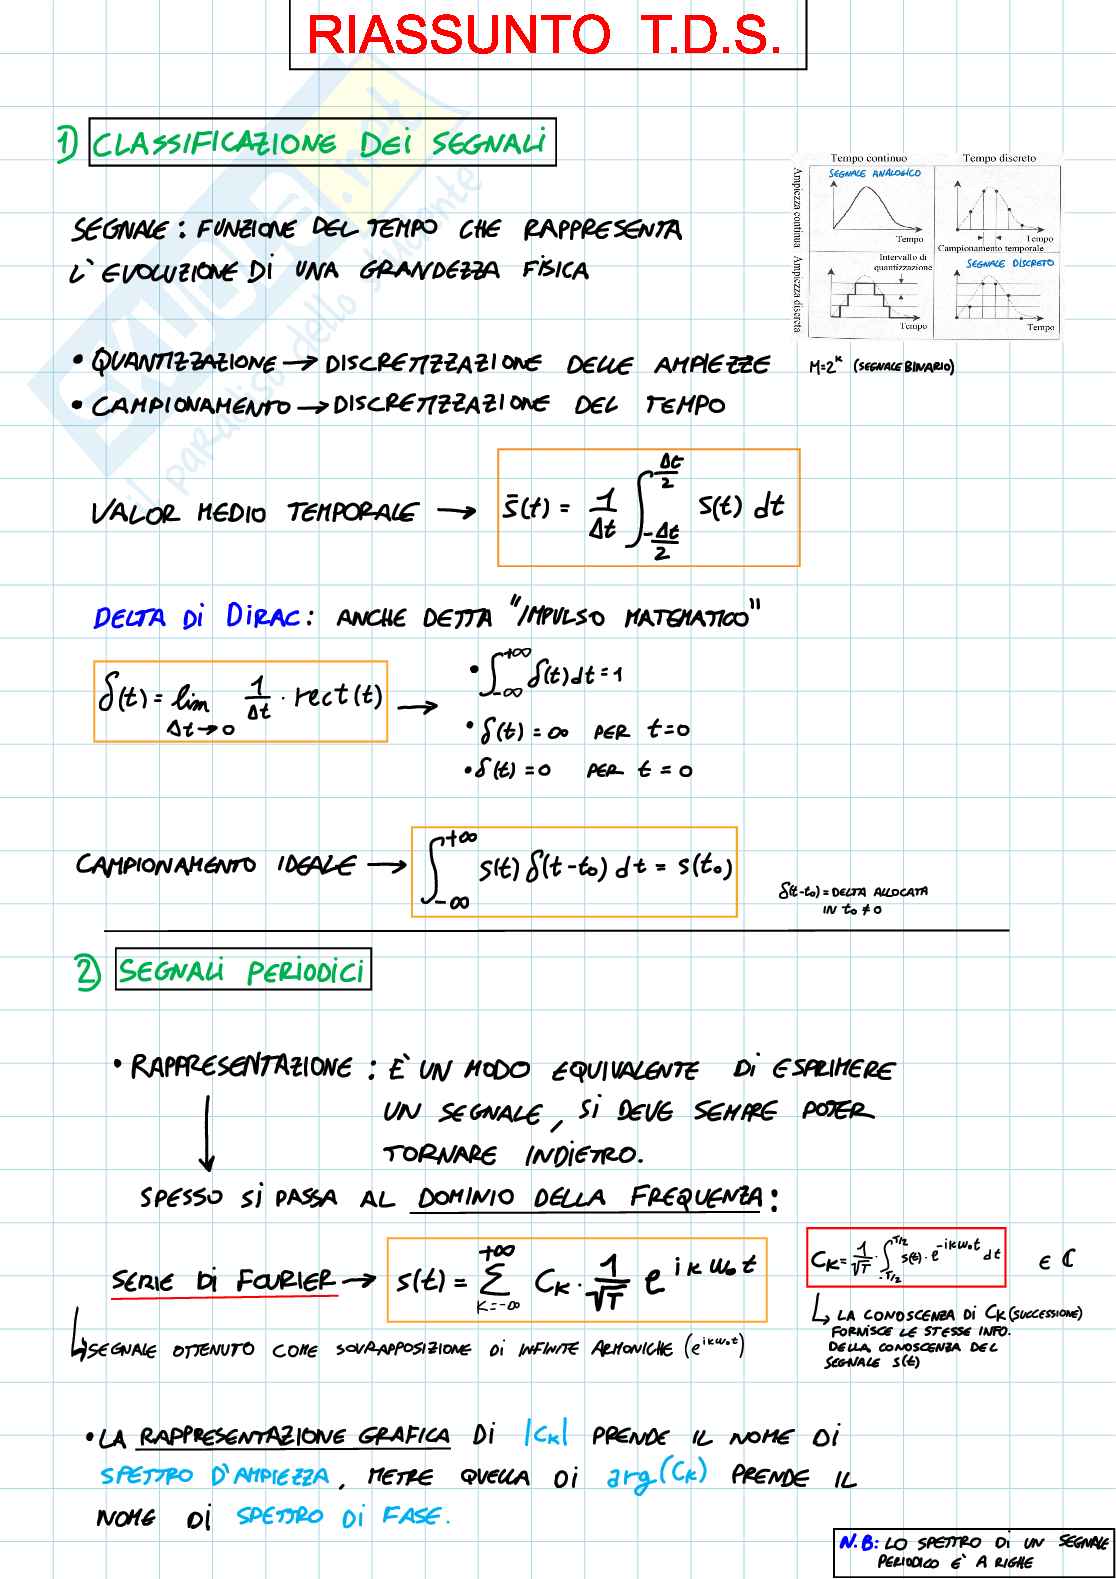 RIASSUNTO T.D.S.
1) CLASSIFICAZIONE DEI SEGNALI
SEGNALE: FUNZIONE DEL TEMPO CHE RAPPRESENTA
L'EVOLUZIONE DI UNA GRANDEZZA FISICA
Tempo continuo Tempo discreto
Ampiezza continua
SEGNALE ANALOGICO
Tempo Tempo
Campionamento temporale
Ampiezza discreta
Intervallo di
quantizzazione
SEGNALE DISCRETO
Tempo Tempo
• QUANTIZZAZIONE → DISCRETIZZAZIONE DELLE AMPIEZZE M=2^k (SEGNALE BINARIO)
• CAMPIONAMENTO → DISCRETIZZAZIONE DEL TEMPO
SKUOLA.net
il paradiso dello studente
VALOR MEDIO TEMPORALE → s̄(t) = 1/Δt ∫_{-Δt/2}^{Δt/2} s(t) dt
DELTA DI DIRAC: ANCHE DETTA "IMPULSO MATEMATICO"
δ(t) = lim_{Δt→0} 1/Δt · rect(t) →
• ∫_{-∞}^{+∞} δ(t)dt = 1
• δ(t) = ∞ PER t=0
• δ(t) = 0 PER t = 0
CAMPIONAMENTO IDEALE → ∫_{-∞}^{+∞} s(t) δ(t-t₀) dt = s(t₀)
δ(t-t₀) = DELTA ALLOCATA
IN t₀ ≠ 0
2) SEGNALI PERIODICI
• RAPPRESENTAZIONE: È UN MODO EQUIVALENTE DI ESPRIMERE
UN SEGNALE, SI DEVE SEMPRE POTER
TORNARE INDIETRO.
SPESSO SI PASSA AL DOMINIO DELLA FREQUENZA:
SERIE DI FOURIER → s(t) = Σ_{k=-∞}^{+∞} C_k · 1/√T e^{ikω₀t}
C_k = 1/√T · ∫_{-T/2}^{T/2} s(t) · e^{-ikω₀t} dt ∈ ℂ
↳ LA CONOSCENZA DI C_k (SUCCESSIONE)
FORNISCE LE STESSE INFO.
DELLA CONOSCENZA DEL
SEGNALE s(t)
↳ SEGNALE OTTENUTO COME SOVRAPPOSIZIONE DI INFINITE ARMONICHE (e^{ikω₀t})
• LA RAPPRESENTAZIONE GRAFICA DI |C_k| PRENDE IL NOME DI
SPETTRO D'AMPIEZZA, METRE QUELLA DI arg(C_k) PRENDE IL
NOME DI SPETTRO DI FASE.
N.B: LO SPETTRO DI UN SEGNALE
PERIODICO E' A RIGHE